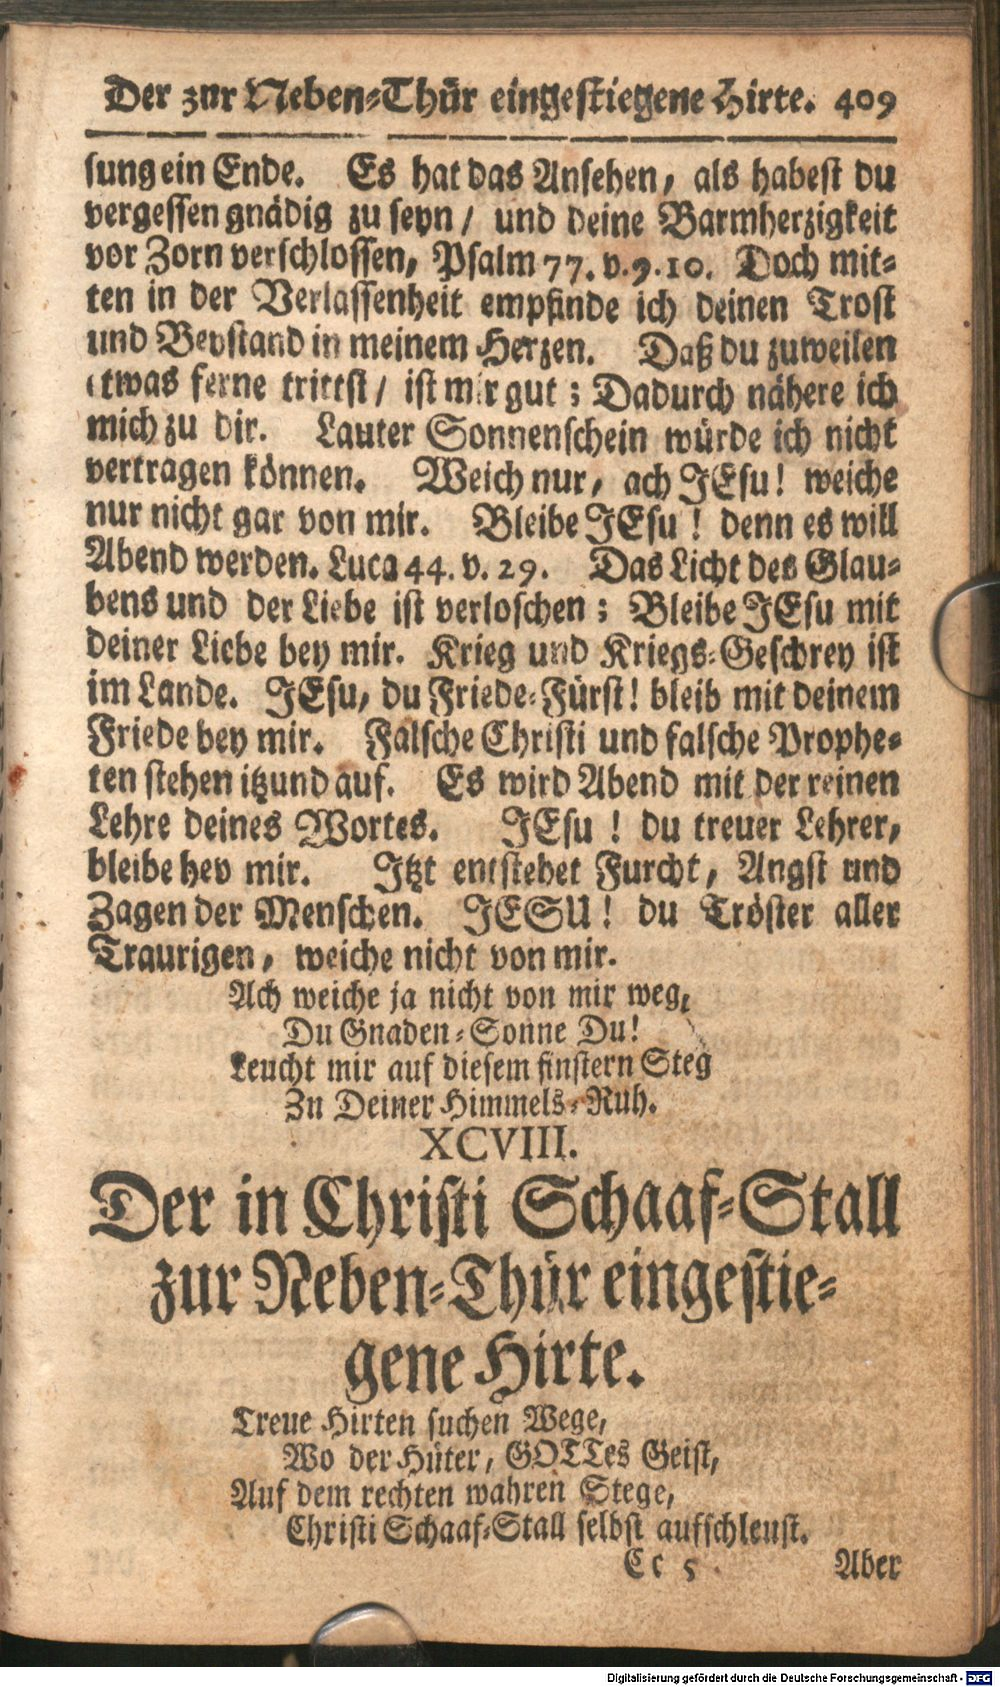 Der zur Neben-Thür eingestiegene Hirte. 409
sung ein Ende. Es hat das Ansehen, als habest du
vergessen gnädig zu seyn / und deine Barmherzigkeit
vor Zorn verschlossen, Psalm 77. v. 9. 10. Doch mit-
ten in der Verlassenheit empfinde ich deinen Trost
und Beystand in meinem Herzen. Daß du zuweilen
etwas ferne trittst / ist mir gut ; Dadurch nähere ich
mich zu dir. Lauter Sonnenschein würde ich nicht
vertragen können. Weich nur, ach JEsu! weiche
nur nicht gar von mir. Bleibe JEsu ! denn es will
Abend werden. Luca 44. v. 29. Das Licht des Glau-
bens und der Liebe ist verloschen ; Bleibe JEsu mit
deiner Liebe bey mir. Krieg und Kriegs-Geschrey ist
im Lande. JEsu, du Friede-Fürst! bleib mit deinem
Friede bey mir. Falsche Christi und falsche Prophe-
ten stehen itzund auf. Es wird Abend mit der reinen
Lehre deines Wortes. JEsu ! du treuer Lehrer,
bleibe bey mir. Jtzt entstehet Furcht, Angst und
Zagen der Menschen. JESU! du Tröster aller
Traurigen, weiche nicht von mir.
Ach weiche ja nicht von mir weg,
Du Gnaden-Sonne Du!
Leucht mir auf diesem finstern Steg
Zu Deiner Himmels-Ruh.
XCVIII.
Der in Christi Schaaf-Stall
zur Neben-Thür eingestie-
gene Hirte.
Treue Hirten suchen Wege,
Wo der Hüter, GOTTes Geist,
Auf dem rechten wahren Stege,
Christi Schaaf-Stall selbst aufschleust.
Cc 5 Aber
Digitalisierung gefördert durch die Deutsche Forschungsgemeinschaft - DFG